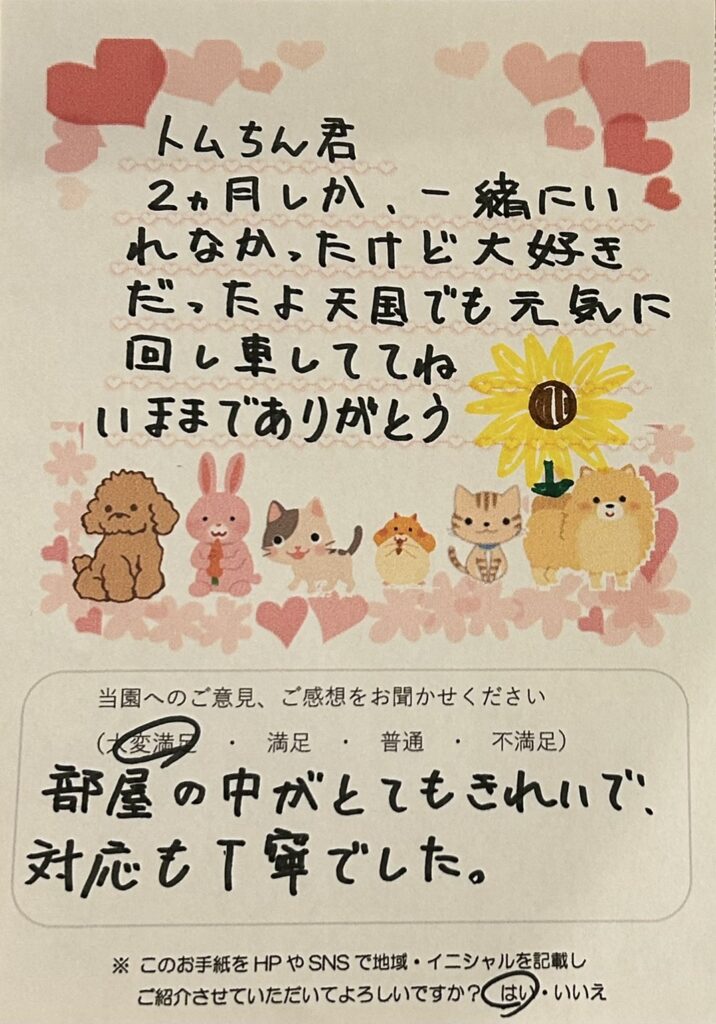 トムちん君
2ヵ月しか、一緒にい
れなかったけど大好き
だったよ天国でも元気に
回し車しててね
いままでありがとう
当園へのご意見、ご感想をお聞かせください
(大変満足 ・ 満足 ・ 普通 ・ 不満足)
部屋の中がとてもきれいで、
対応も丁寧でした。
※ このお手紙をHPやSNSで地域・イニシャルを記載し
ご紹介させていただいてよろしいですか? はい・いいえ